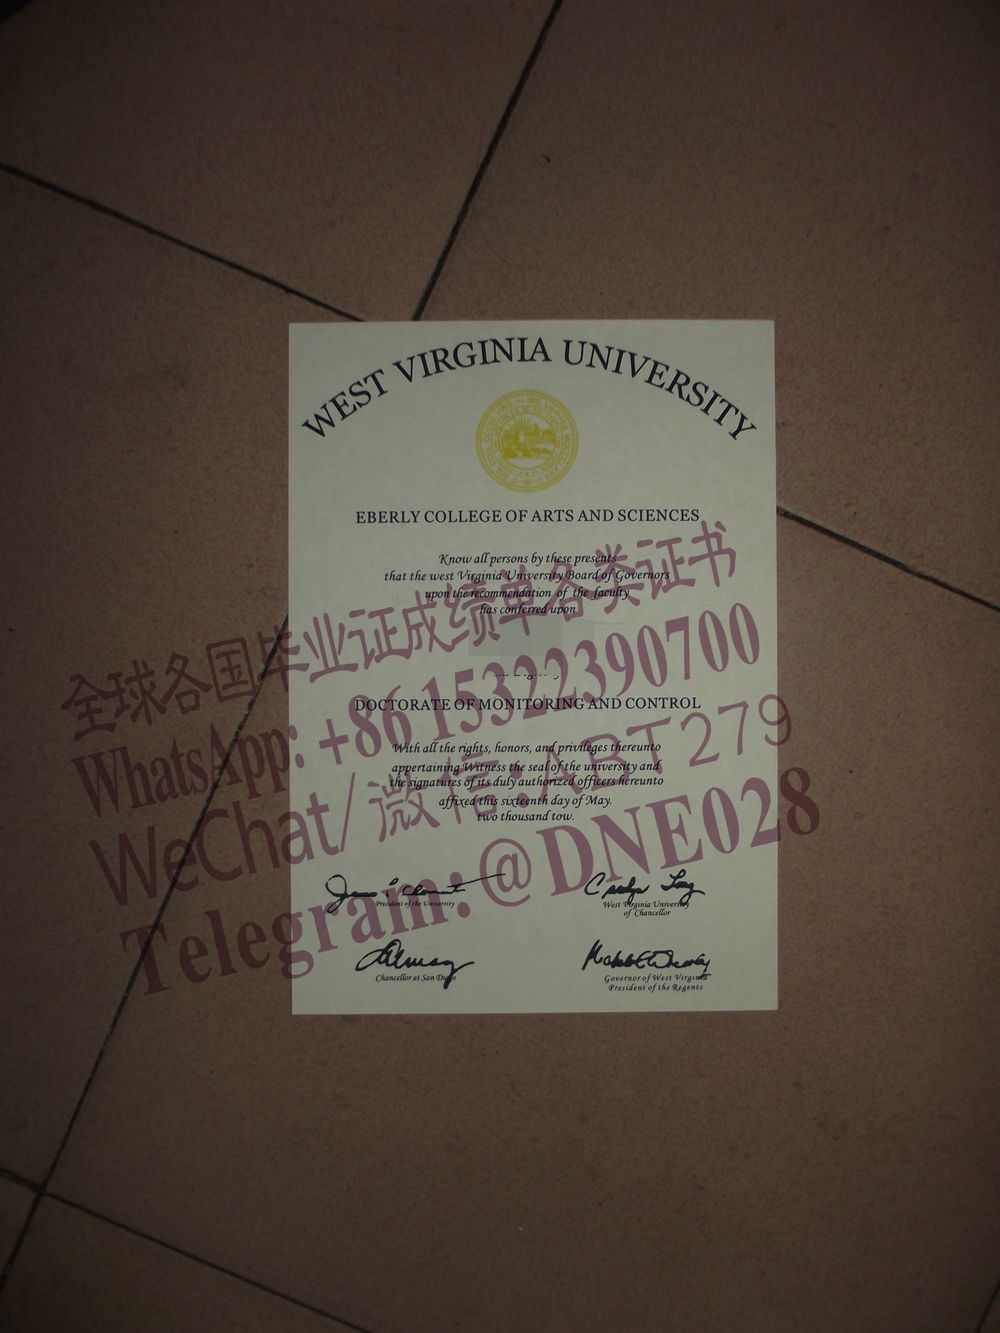 WEST VIRGINIA UNIVERSITY
EBERLY COLLEGE OF ARTS AND SCIENCES
Know all persons by these presents
that the west Virginia University Board of Governors
upon the recommendation of the faculty
has conferred upon
全球各国毕业证成绩单各类证书
WhatsApp: +86 15322390700
DOCTORATE OF MONITORING AND CONTROL
WeChat/微信:ABT279
With all the rights, honors, and privileges thereunto
appertaining Witness the seal of the university and
the signatures of its duly authorized officers hereunto
affixed this sixteenth day of May.
two thousand tow.
Telegram:@DNE028
President of the University
West Virginia University
of Chancellor
Chancellor at San Diego
Governor of West Virginia
President of the Regents